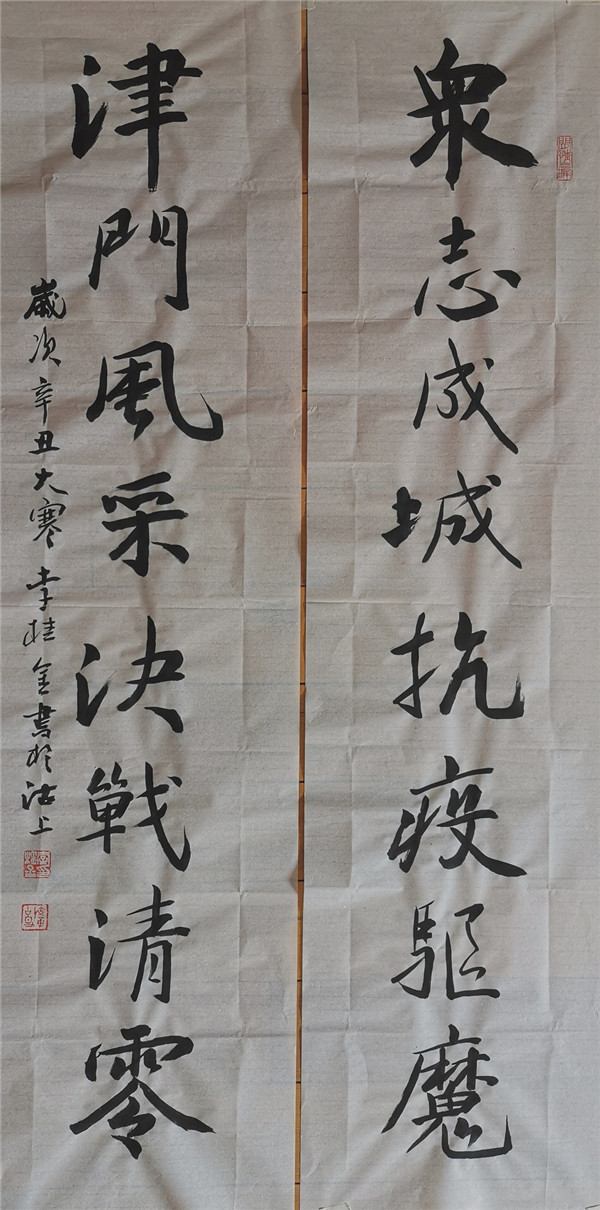 衆志成城抗疫驅魔
津門風采決戰清零
歲次辛丑大寒李桂金書於沽上